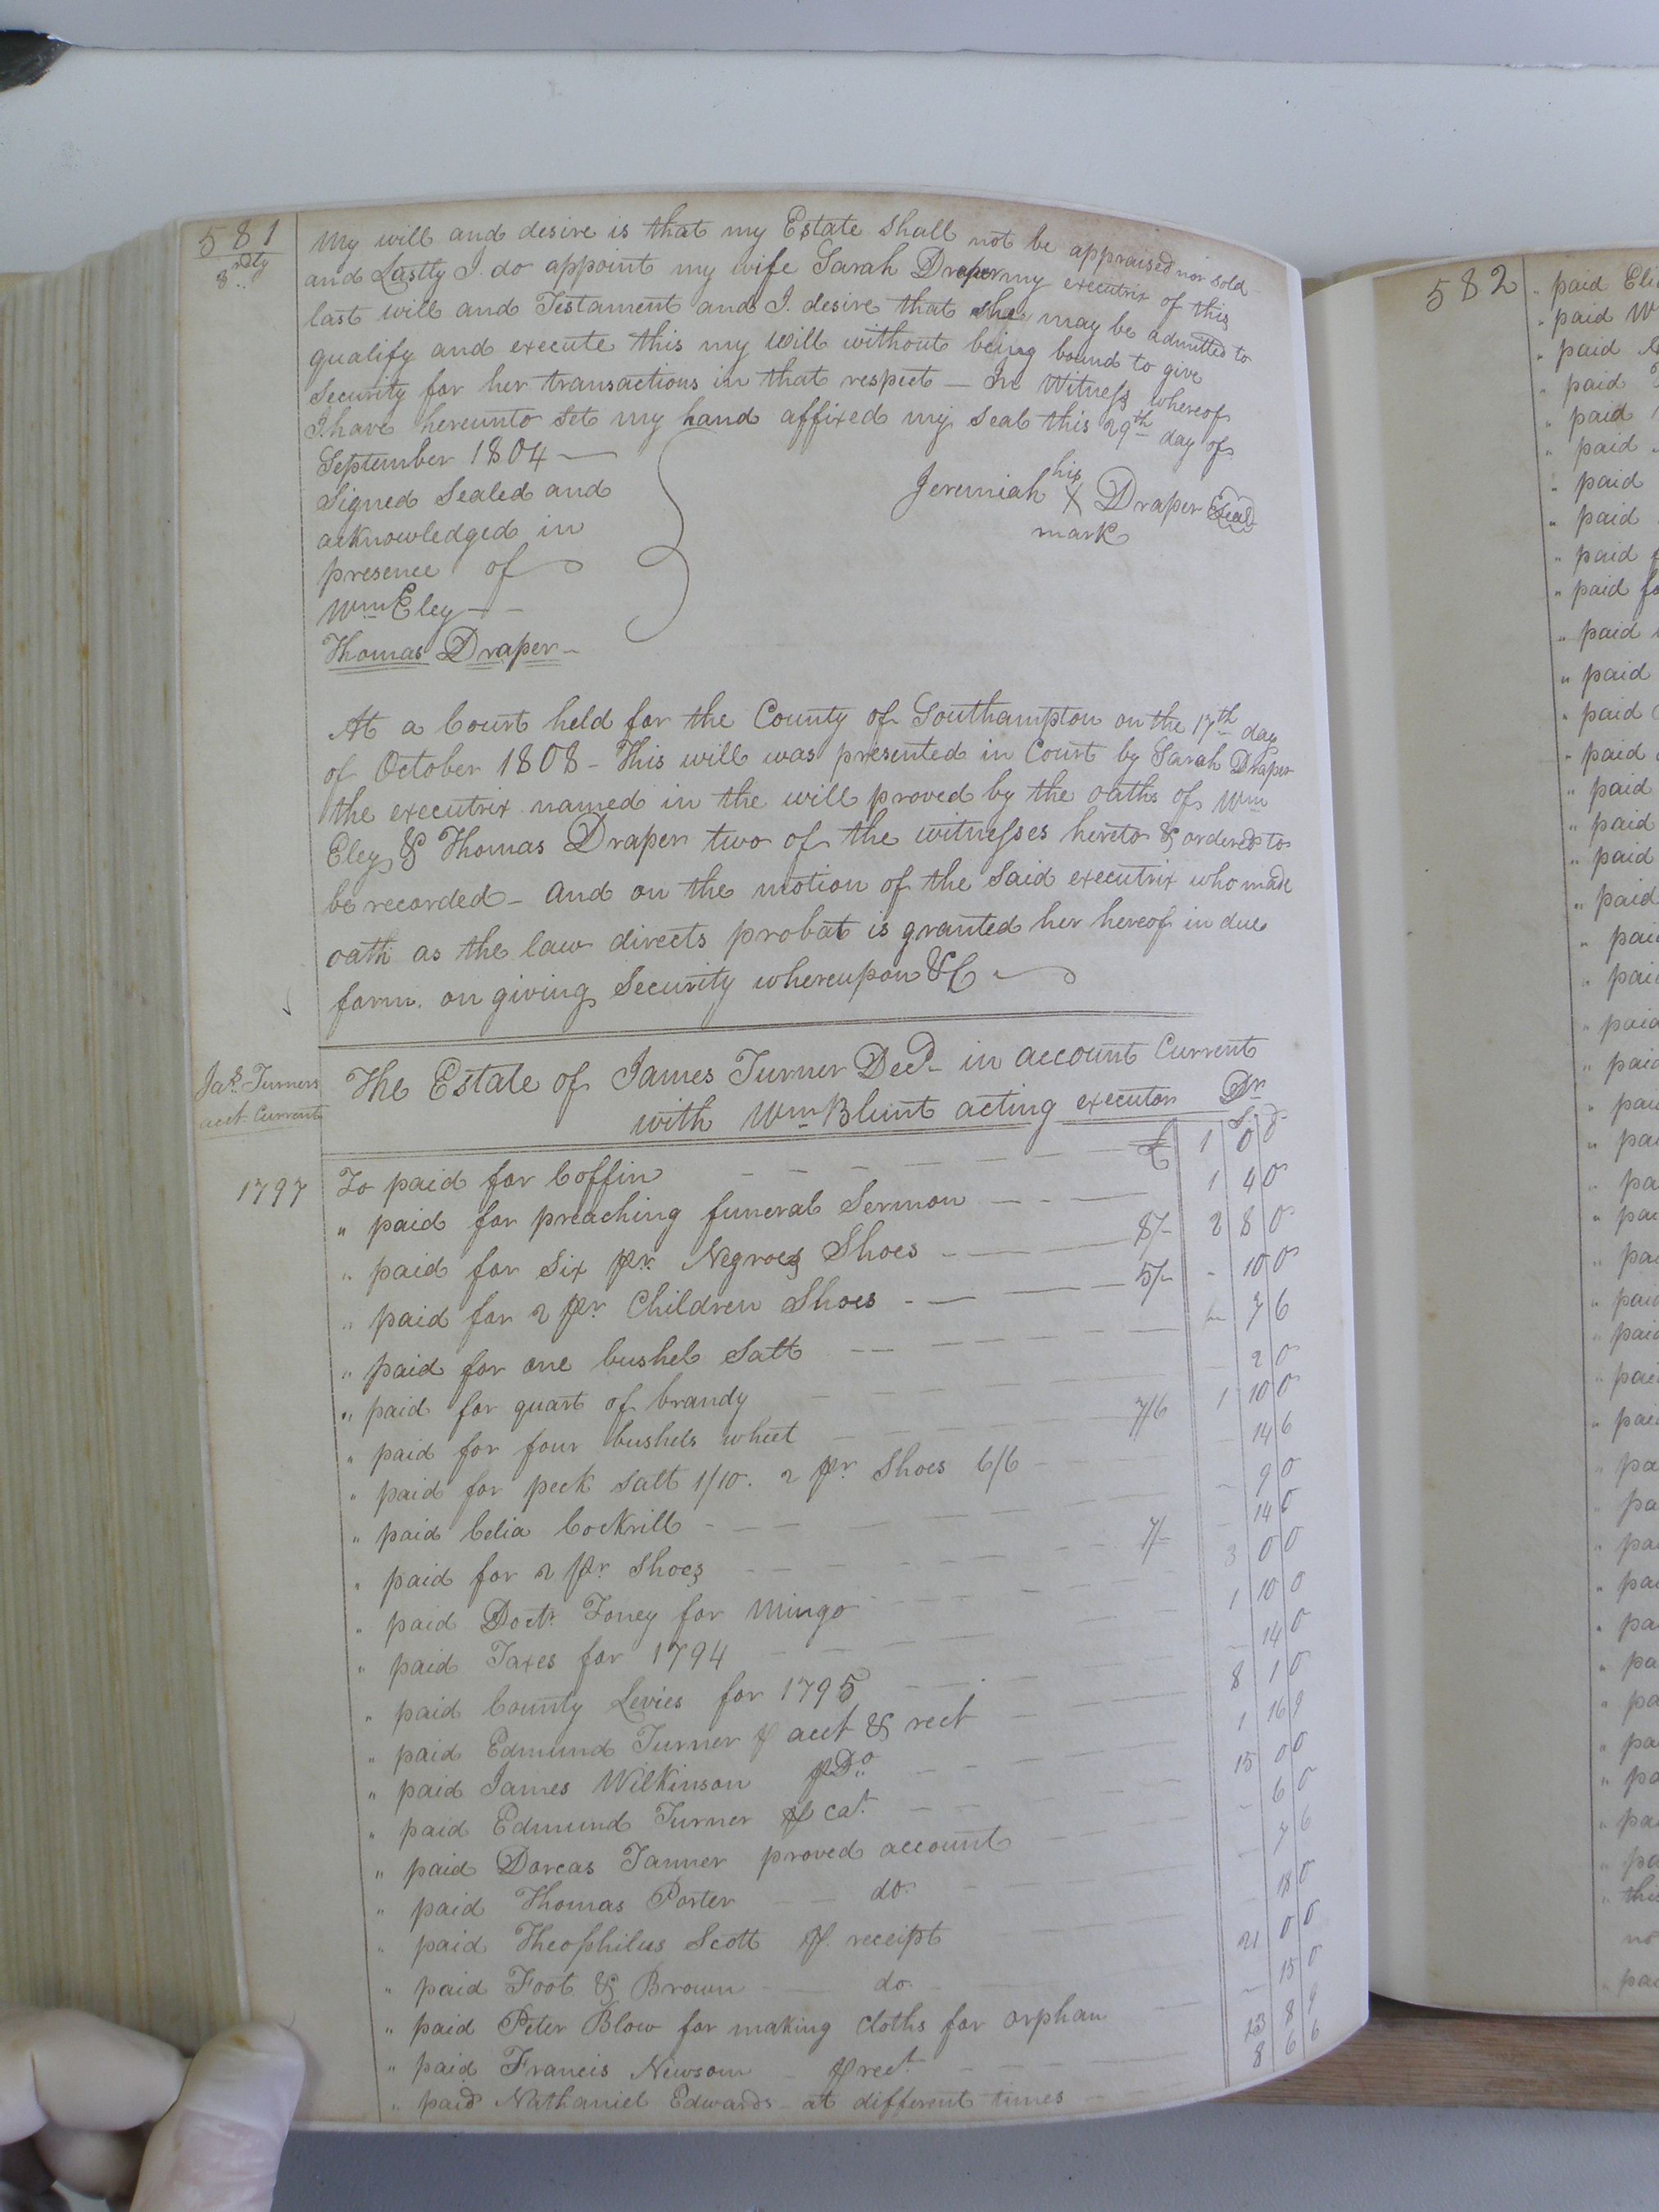 581
My will and desire is that my Estate shall not be appraised nor sold
and Lastly I do appoint my wife Sarah Draper my executrix of this
last will and Testament and I desire that she may be admitted to
qualify and execute this my Will without being bound to give
Security for her transactions in that respect — In Witness whereof
I have hereunto set my hand affixed my Seal this 29th day of
September 1804 —
Signed Sealed and
acknowledged in
presence of
Wm Eley
Thomas Draper
his
Jeremiah X Draper Seal
mark
At a Court held for the County of Southampton on the 17th day
of October 1808 – This will was presented in Court by Sarah Draper
the executrix named in the will proved by the oaths of Wm
Eley & Thomas Draper two of the witnesses hereto & ordered to
be recorded – and on the motion of the said executrix who made
oath as the law directs probat is granted her hereof in due
form. on giving Security whereupon &C
Jas. Turners
acct. Current
The Estate of James Turner Decd in account Current
with Wm Blunt acting executor Dr
S d
1797 To paid for Coffin £ 1 0 0
" paid for preaching funeral Sermon 1 4 0
" paid for Six pr. Negroes Shoes 8/- 2 8 0
" paid for 2 pr. Children Shoes 5/- - 10 0
" paid for one bushel Salt - 7 6
" paid for quart of brandy 2 0
" paid for four bushels wheet 7/6 1 10 0
" paid for peck Salt 1/10. 2 pr Shoes 6/6 14 6
" paid Celia Cockrill 9 0
" paid for 2 pr Shoes 7/- 14 0
" paid Doctr. Toney for Mingo 3 0 0
" paid Taxes for 1794 1 10 0
" paid County Levies for 1795 14 0
" paid Edmund Turner p acct & rect 8 1 0
" paid James Wilkinson p Do. 1 16 9
" paid Edmund Turner 15 0 0
" paid Dorcas Tanner proved account - 6 0
" paid Thomas Porter do. 7 6
" paid Theophilus Scott p. receipt 18 0
" paid Foot & Brown do. 21 0 0
" paid Peter Blow for making cloths for orphan 15 0
" paid Francis Newsom p rect. 23 8 9
" paid Nathaniel Edwards at different times 8 6 6
582
" paid
" paid
" paid
" paid
" paid
" paid
" paid
" paid
" paid
" paid
" paid
" paid
" paid
" paid
" paid
" paid
" paid
" paid